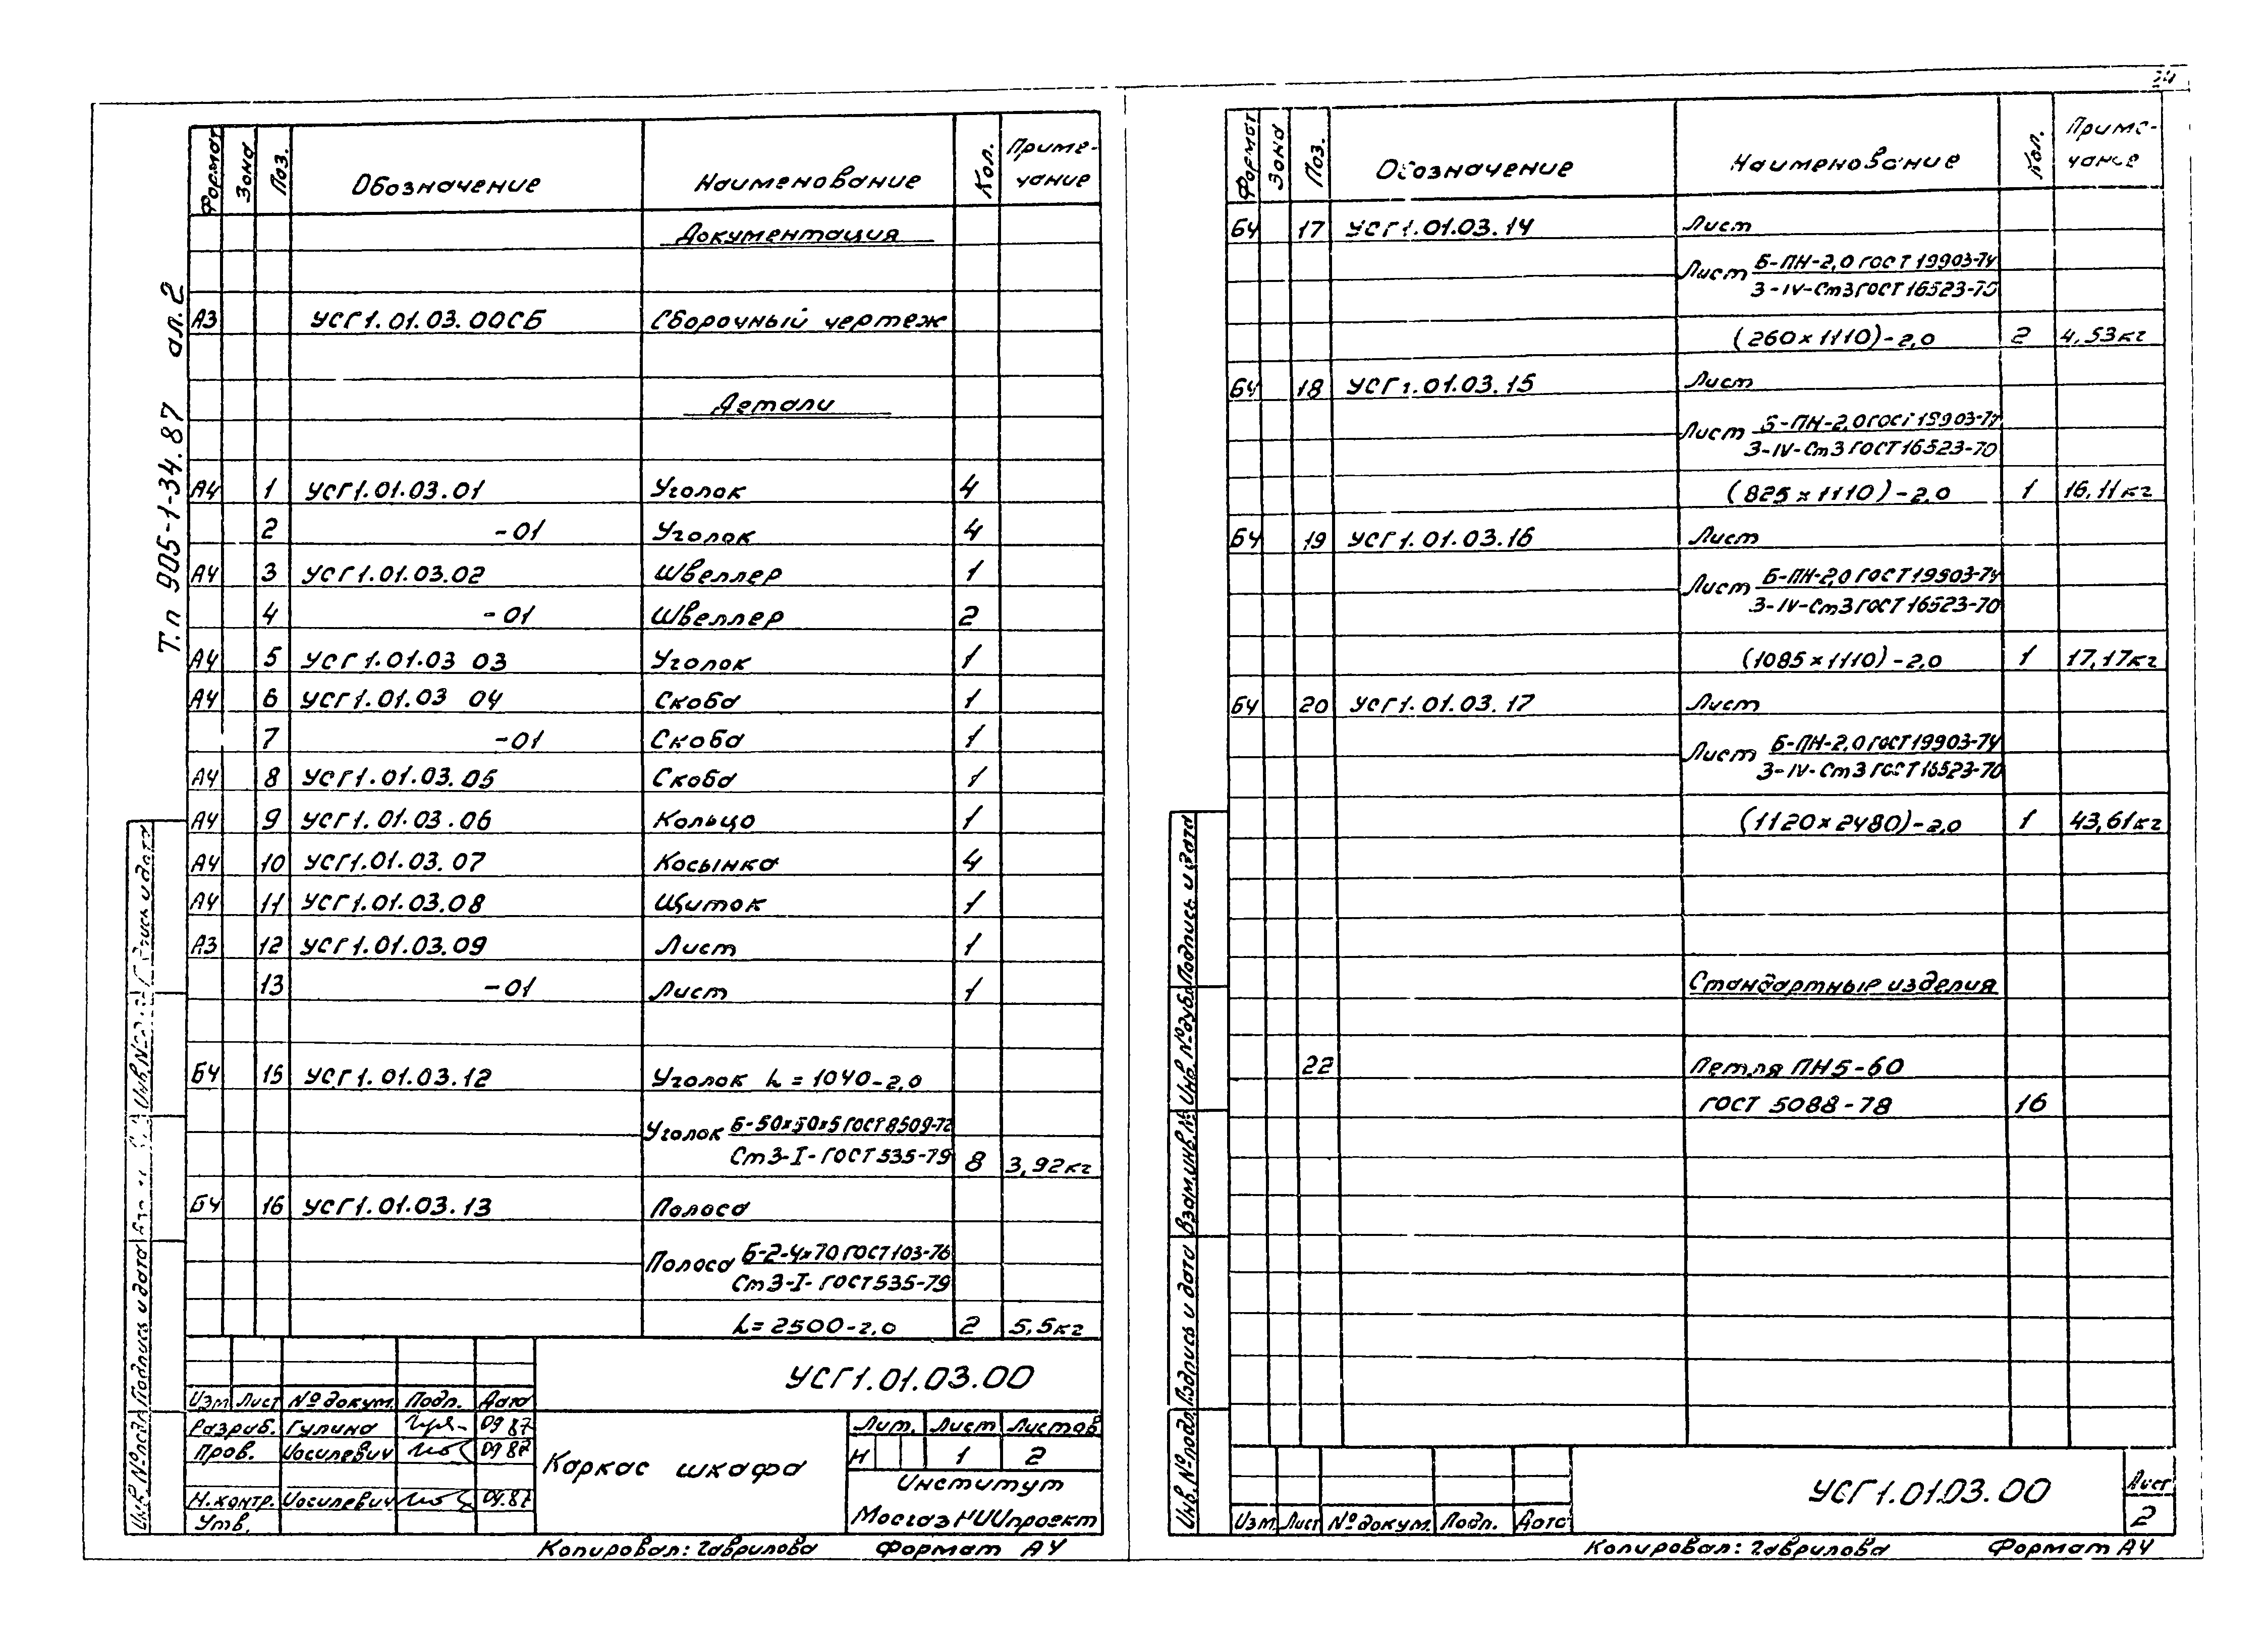 24
Т.п 905-1-34.87 ал.2
Формат Зона Поз. Обозначение Наименование Кол. Приме-
чание
Документация
А3 УСГ1.01.03.00СБ Сборочный чертеж
Детали
А4 1 УСГ1.01.03.01 Уголок 4
2 -01 Уголок 4
А4 3 УСГ1.01.03.02 Швеллер 1
4 -01 Швеллер 2
А4 5 УСГ1.01.03 03 Уголок 1
А4 6 УСГ1.01.03 04 Скоба 1
7 -01 Скоба 1
А4 8 УСГ1.01.03.05 Скоба 1
А4 9 УСГ1.01.03.06 Кольцо 1
А4 10 УСГ1.01.03.07 Косынка 4
А4 11 УСГ1.01.03.08 Щиток 1
А3 12 УСГ1.01.03.09 Лист 1
13 -01 Лист 1
БЧ 15 УСГ1.01.03.12 Уголок L=1040-2,0
Уголок Б-50х50х5 ГОСТ 8509-72
Ст3-I-ГОСТ 535-79 8 3,92кг
БЧ 16 УСГ1.01.03.13 Полоса
Полоса Б-2-4х70 ГОСТ 103-76
Ст3-I-ГОСТ 535-79
L=2500-2,0 2 5,5кг
УСГ1.01.03.00
Изм Лист № докум. Подп. Дата
Разраб. Гулина 09 87
Пров. Иосилевич 09 87
Н.контр. Иосилевич 09.87
Утв.
Каркас шкафа
Лит. Лист Листов
Н 1 2
Институт
МосгазНИИпроект
Копировал: Гаврилова Формат А4
Инв.№подл. Подпись и дата
Формат Зона Поз. Обозначение Наименование Кол. Приме-
чание
БЧ 17 УСГ1.01.03.14 Лист
Лист Б-ПН-2,0 ГОСТ 19903-74
3-IV-Ст3 ГОСТ 16523-70
(260х1110)-2,0 2 4,53кг
БЧ 18 УСГ1.01.03.15 Лист
Лист Б-ПН-2,0 ГОСТ 19903-74
3-IV-Ст3 ГОСТ 16523-70
(825х1110)-2,0 1 16,11кг
БЧ 19 УСГ1.01.03.16 Лист
Лист Б-ПН-2,0 ГОСТ 19903-74
3-IV-Ст3 ГОСТ 16523-70
(1085х1110)-2,0 1 17,17кг
БЧ 20 УСГ1.01.03.17 Лист
Лист Б-ПН-2,0 ГОСТ 19903-74
3-IV-Ст3 ГОСТ 16523-70
(1120х2480)-2,0 1 43,61кг
Стандартные изделия
22 Петля ПН5-60
ГОСТ 5088-78 16
Инв.№подл. Подпись и дата Взам.инв.№ Инв.№дубл. Подпись и дата
УСГ1.01.03.00
Лист
2
Изм Лист № докум. Подп. Дата
Копировал: Гаврилова Формат А4